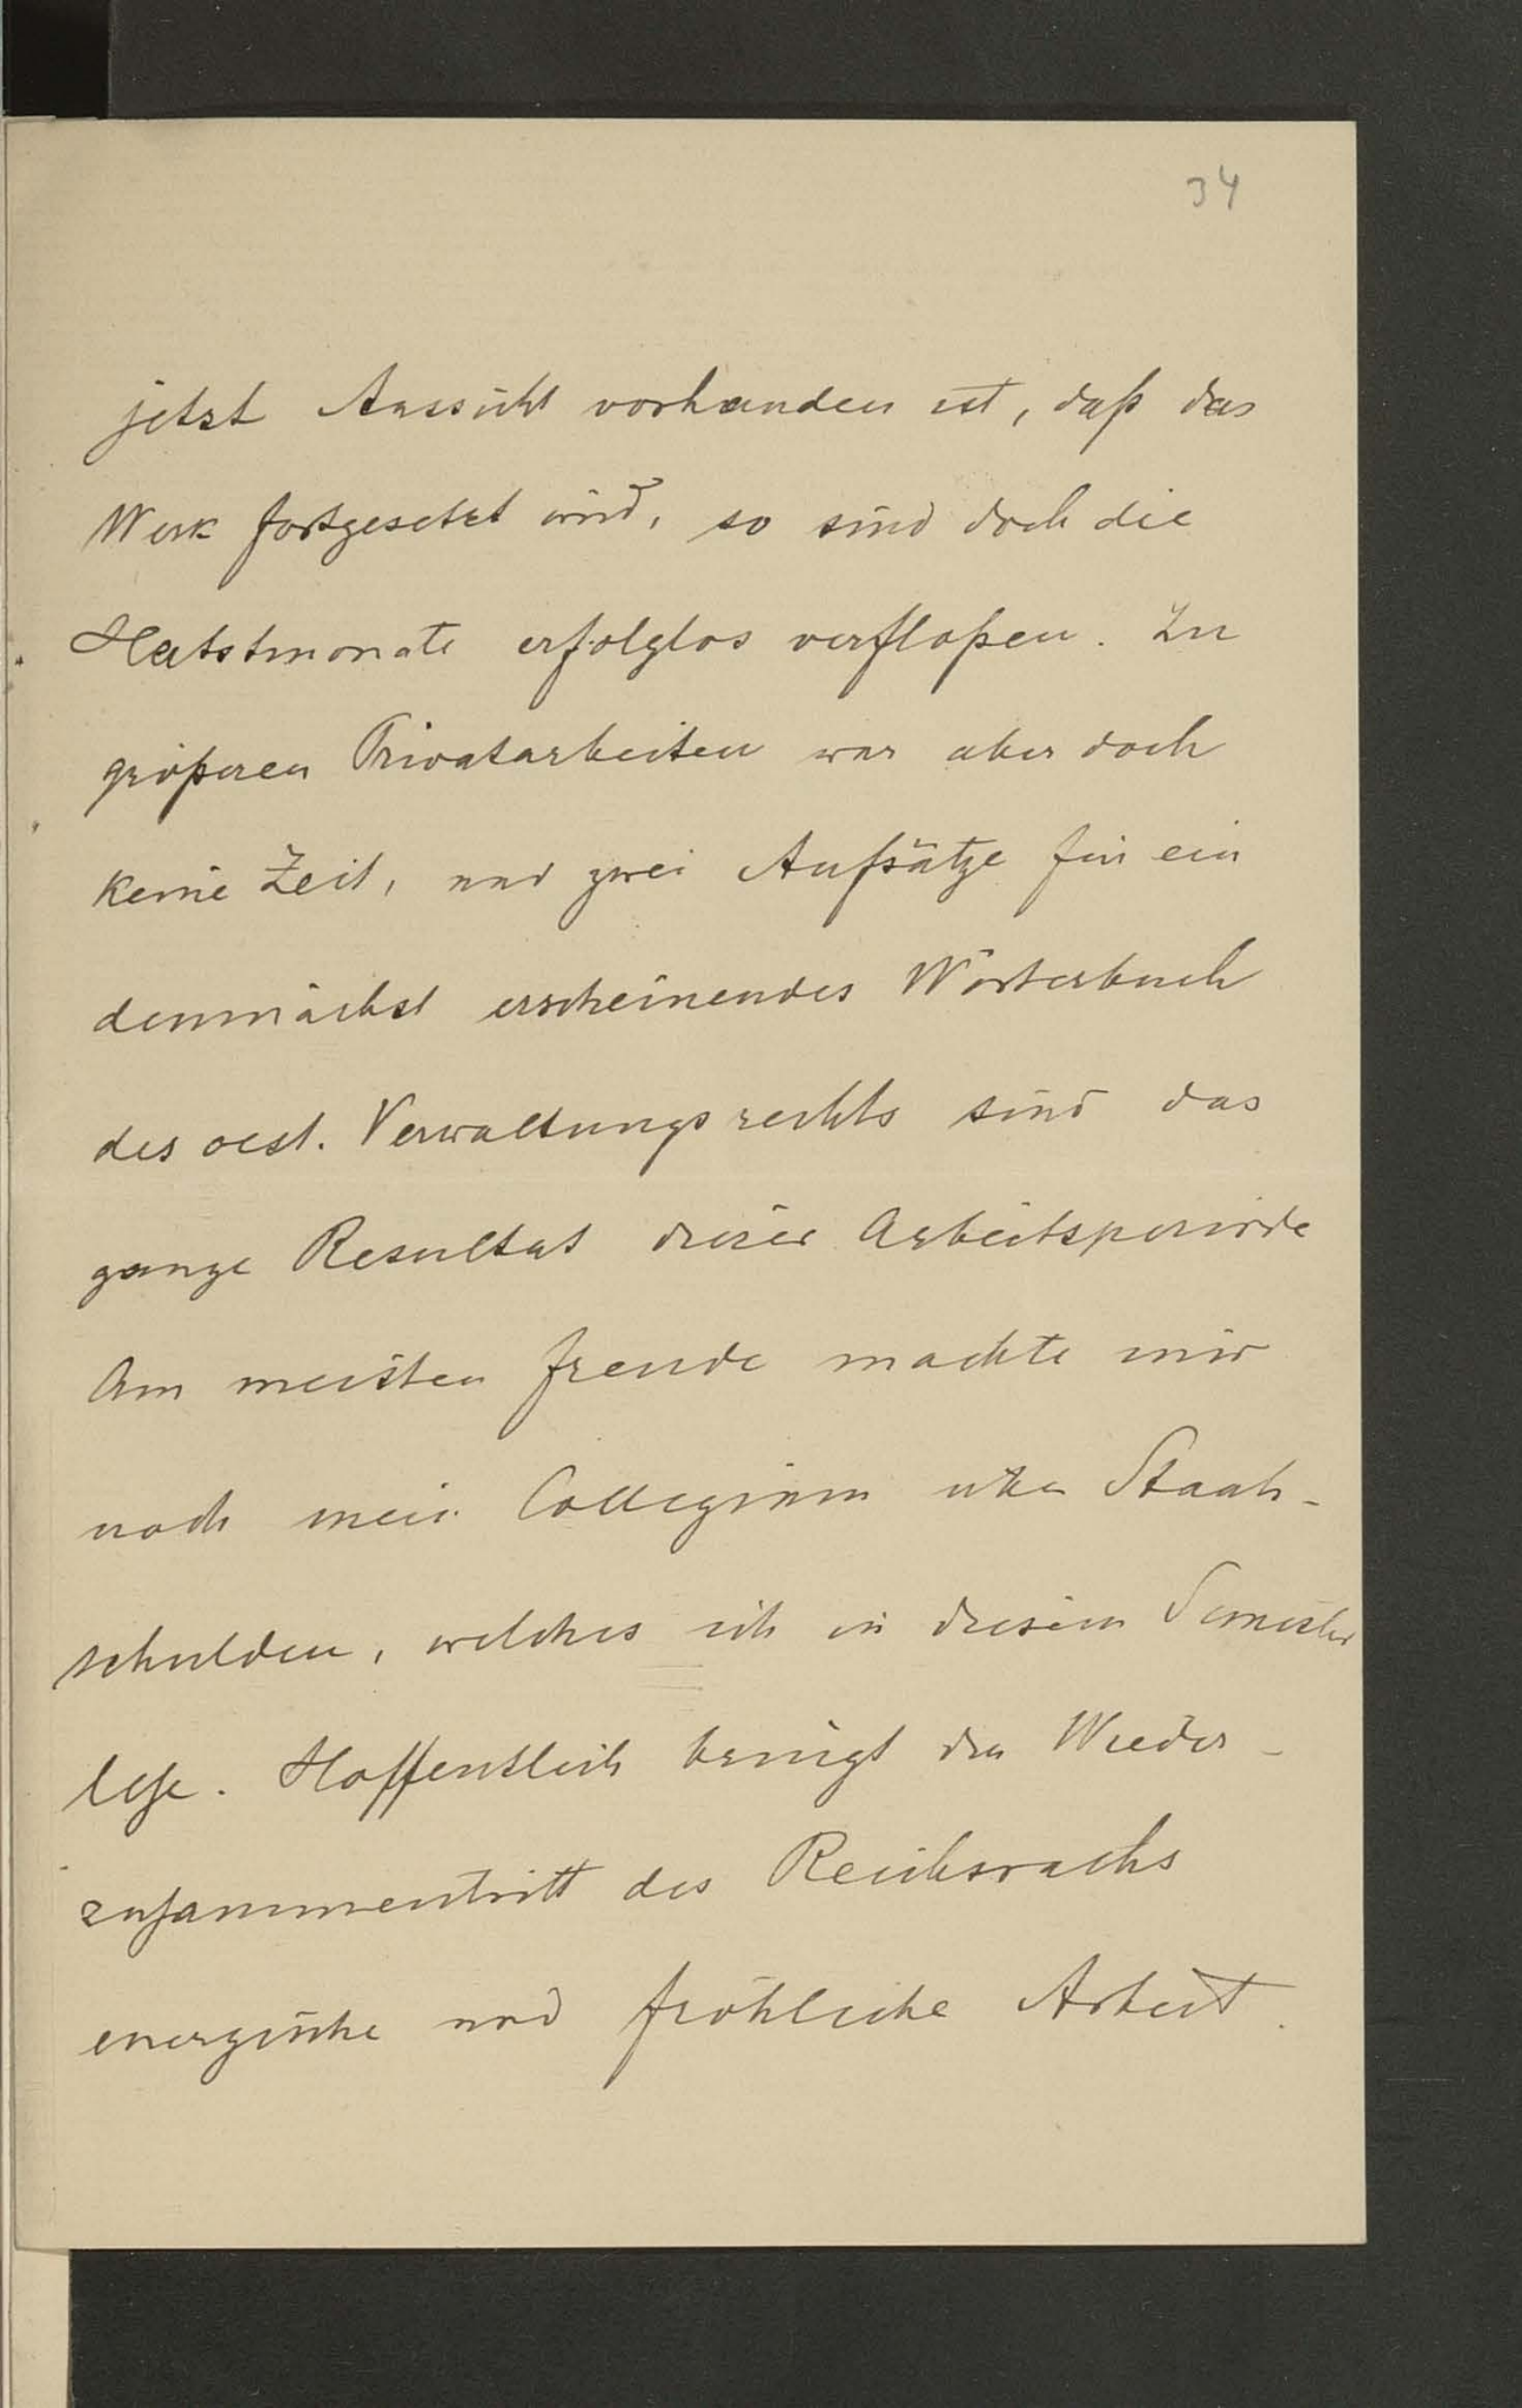 34
jetzt Aussicht vorhanden ist, daß das
Werk fortgesetzt wird, so sind doch die
Herbstmonate erfolglos verfloßen. Zu
größeren Privatarbeiten war aber doch
keine Zeit, und zwei Aufsätze für ein
demnächst erscheinendes Wörterbuch
des oest. Verwaltungsrechts sind das
ganze Resultat dieser Arbeitsperiode
Am meisten Freude machte mir
noch mein Collegium über Staats-
schulden, welches ich in diesem Semester
lese. Hoffentlich bringt der Wieder-
zusammentritt des Reichsraths
energische und fröhliche Arbeit.